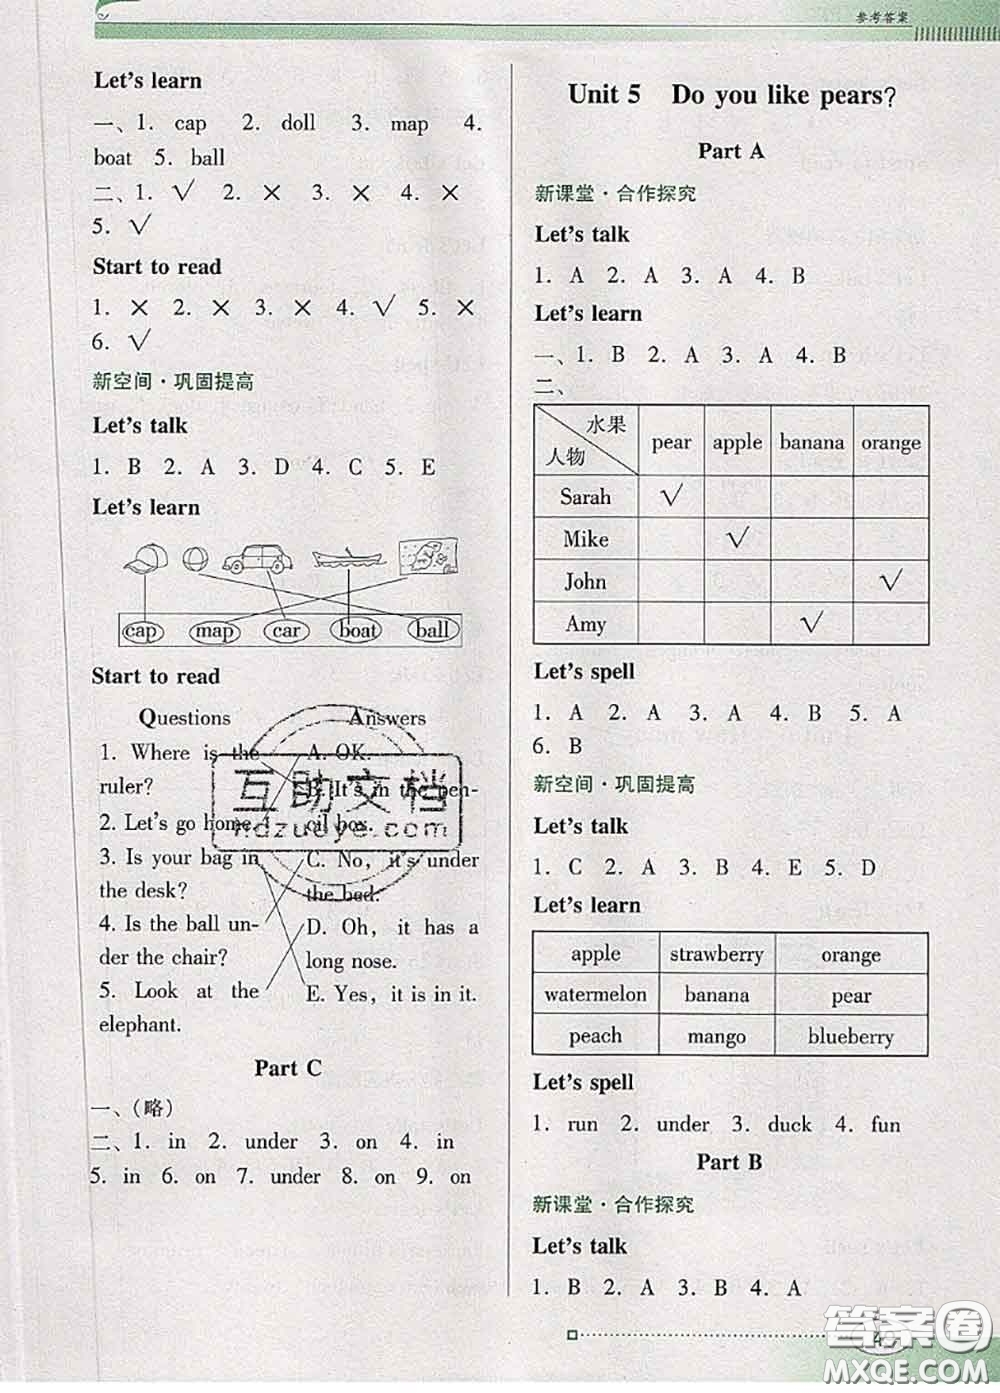 参考答案
Let's learn
一、1. cap 2. doll 3. map 4.
boat 5. ball
二、1. √ 2. × 3. × 4. ×
5. √
Start to read
1. × 2. × 3. × 4. √ 5. ×
6. √
新空间·巩固提高
Let's talk
1. B 2. A 3. D 4. C 5. E
Let's learn
cap map car boat ball
Start to read
Questions Answers
1. Where is the
ruler?
2. Let's go home.
3. Is your bag in
the desk?
4. Is the ball un-
der the chair?
5. Look at the
elephant.
A. OK.
B. It's in the pen-
cil box.
C. No, it's under
the bed.
D. Oh, it has a
long nose.
E. Yes, it is in it.
Part C
一、(略)
二、1. in 2. under 3. on 4. in
5. in 6. on 7. under 8. on 9. on
Unit 5 Do you like pears?
Part A
新课堂·合作探究
Let's talk
1. A 2. A 3. A 4. B
Let's learn
一、1. B 2. A 3. A 4. B
二、
水果 人物 pear apple banana orange
Sarah √
Mike √
John √
Amy √
Let's spell
1. A 2. A 3. A 4. B 5. A
6. B
新空间·巩固提高
Let's talk
1. C 2. A 3. B 4. E 5. D
Let's learn
apple strawberry orange
watermelon banana pear
peach mango blueberry
Let's spell
1. run 2. under 3. duck 4. fun
Part B
新课堂·合作探究
Let's talk
1. B 2. A 3. B 4. A
互助文档
hdzuoye.com
答案圈
MXQE.COM